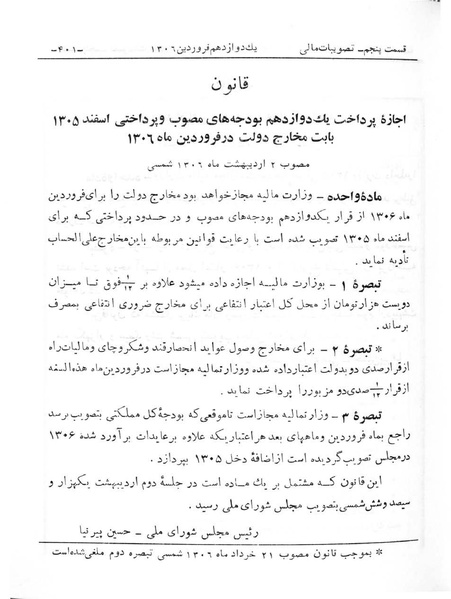 قسمت پنجم - تصویبات مالی    یك دوازدهم فروردین ۱۳۰۶    -۴۰۱-
قانون
اجازهٔ پرداخت یك دوازدهم بودجه‌های مصوب و پرداختی اسفند ۱۳۰۵
بابت مخارج دولت در فروردین ماه ۱۳۰۶
مصوب ۲ اردیبهشت ماه ۱۳۰۶ شمسی
مادهٔ واحده - وزارت مالیه مجاز خواهد بود مخارج دولت را برای فروردین
ماه ۱۳۰۶ از قرار یكدوازدهم بودجه‌های مصوب و در حدود پرداختی كه برای
اسفند ماه ۱۳۰۵ تصویب شده است با رعایت قوانین مربوطه باین مخارج علی الحساب
تادیه نماید .
تبصرهٔ ۱ - بوزارت مالیه اجازه داده میشود علاوه بر ۱/۱۲ فوق تا میزان
دویست هزار تومان از محل كل اعتبار انتفاعی برای مخارج ضروری انتفاعی بمصرف
برساند .
* تبصرهٔ ۲ - برای مخارج وصول عواید انحصار قند و شكر و چای و مالیات راه
از قرار صدی دو بدولت اعتبار داده شده و وزارت مالیه مجاز است در فروردین ماه هذه‌السنه
از قرار ۱/۱۲ صدی دو مزبور را پرداخت نماید .
تبصرهٔ ۳ - وزارت مالیه مجاز است تا موقعی كه بودجهٔ كل مملكتی بتصویب برسد
راجع بماه فروردین و ماههای بعد هر اعتباریكه علاوه بر عایدات برآورد شده ۱۳۰۶
در مجلس تصویب گردیده است از اضافهٔ دخل ۱۳۰۵ بپردازد .
این قانون كه مشتمل بر یك ماده است در جلسهٔ دوم اردیبهشت یكهزار و
سیصد و شش شمسی بتصویب مجلس شورای ملی رسید .
رئیس مجلس شورای ملی - حسین پیرنیا
* بموجب قانون مصوب ۲۱ خرداد ماه ۱۳۰۶ شمسی تبصره دوم ملغی شده است